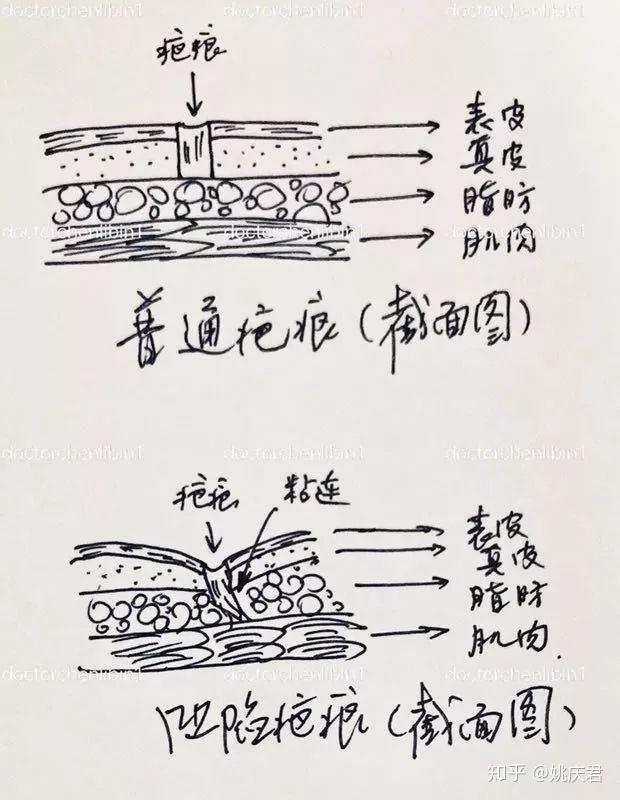 doctorchenlibin1 doctorchenlibin1 doctorchenlibin1
疤痕
表皮
真皮
脂肪
肌肉
doctorchenlibin1 doctorchenlibin1 doctorchenlibin1
普通疤痕(截面图)
doctorchenlibin1 doctorchenlibin1 doctorchenlibin1
疤痕 粘连
表皮
真皮
脂肪
肌肉.
doctorchenlibin1 doctorchenlibin1 doctorchenlibin1
凹陷疤痕(截面图)
知乎 @姚庆君